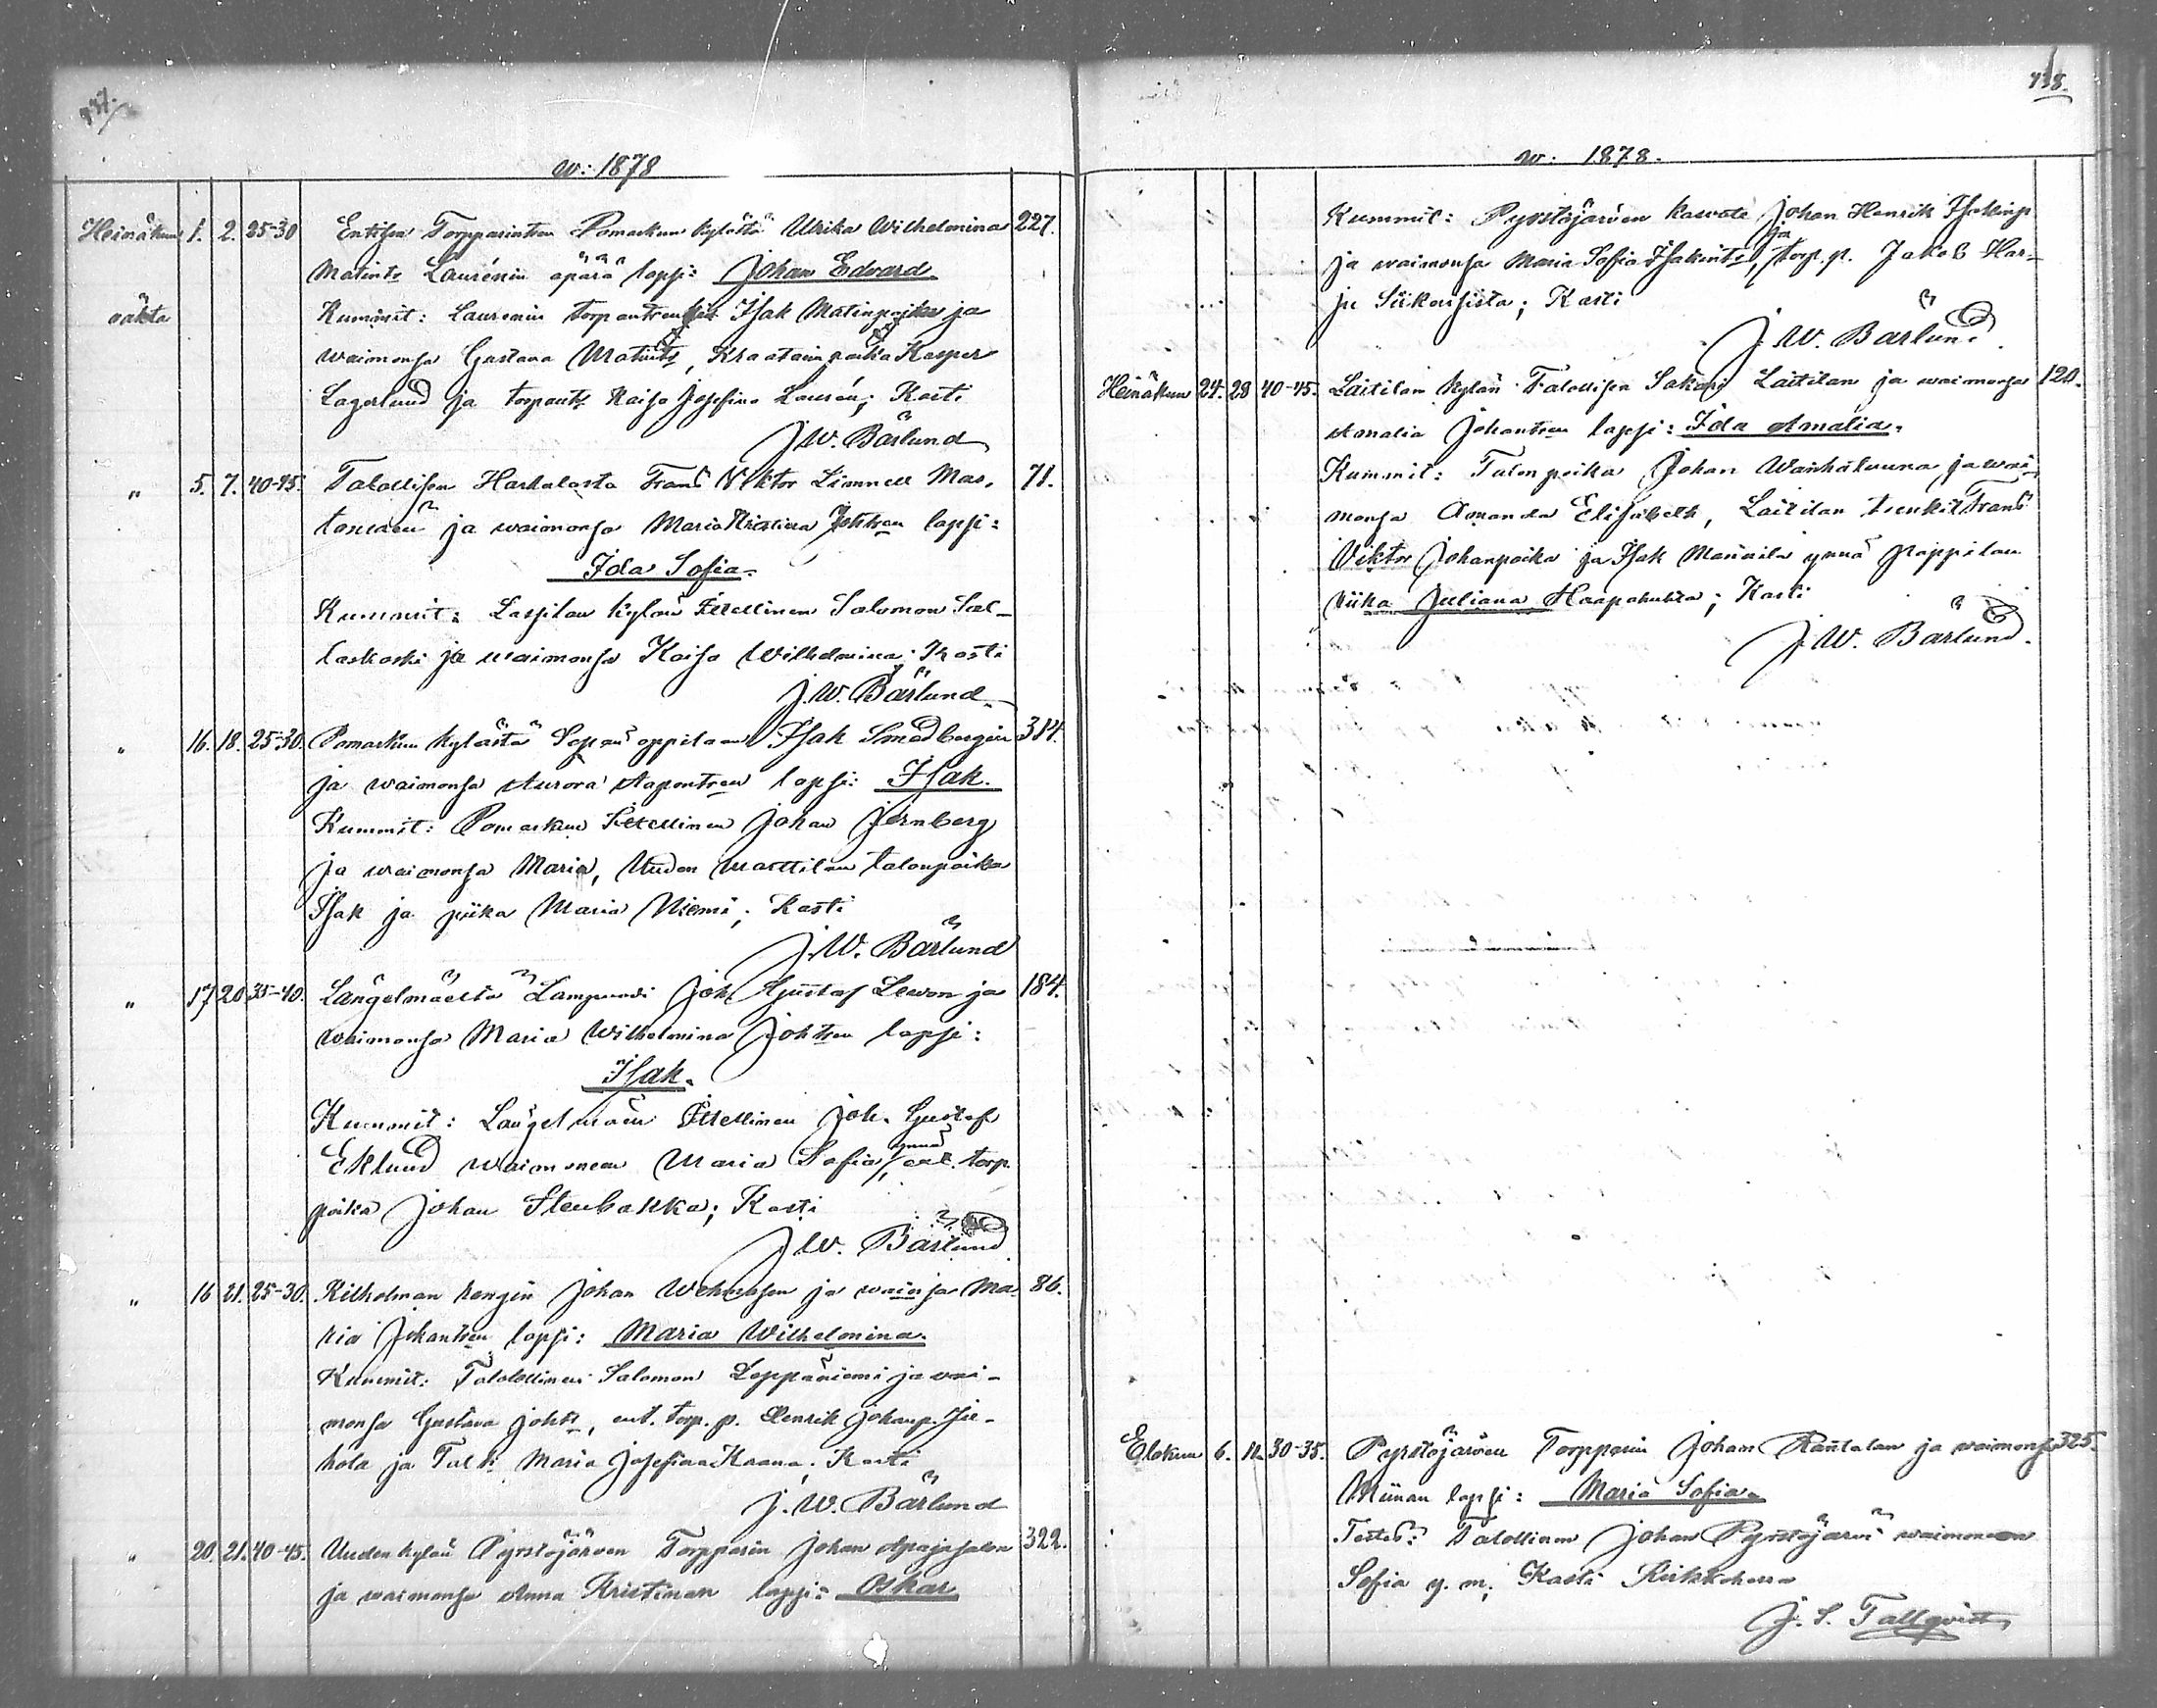 737.
w: 1878
Heinäkuu 1. 2. 25-30 Entisen Torpparintren Pomarkun kylästä Ulrika Wilhelmina 227.
Matints Laurénin äpärä lapsi: Johan Edvard
näkta Kummit: Laurenin Isak Matinpoika ja
waimonsa Gustava Matints, Kraatarin poika Kasper
Lagerlund ja Kaisa Josefina Laurén; Kasti
J. W. Bärlund
" 5. 7. 40-45. Talollisen Harkalasta Frans Viktor Limnell Mas- 71.
ja waimonsa Maria Kristiina Johtren lapsi:
Ida Sofia.
Kummit: Lassilan kylän Itsellinen Salomon Sal-
laskoski ja waimonsa Kaisa Wilhelmina; Kasti
J. W. Bärlund
" 16. 18. 25-30. Pomarkun kylästä Sepän oppilaan Isak Smedbergin 314.
ja waimonsa Aurora Aapontren lapsi: Isak.
Kummit: Pomarkun Itsellinen Johan Jernberg
ja waimonsa Maria, Uuden Marttilan talonpoika
Isak ja piika Maria Niemi; Kasti
J. W. Bärlund
" 17 20 35-40. Längelmäeltä Lampuodi Joh. Gustaf Lewon ja 184.
waimonsa Maria Wilhelmina Johtren lapsi:
Isak.
Kummit: Längelmäen Itsellinen Joh. Gustaf
Eklund waimoneen Maria Sofia, ynnä ent. torp.
poika Johan Stenbakka; Kasti
J. W. Bärlund
" 16 21. 25-30. Kilholman rengin Johan ja waimsa Ma- 86.
ria Johantren lapsi: Maria Wilhelmina.
Kummit: Talollinen Salomon Leppäniemi ja wai-
monsa Gustava Johts, ent. torp. p. Henrik Johanp.
ja Maria Josefiina; Kasti
J. W. Bärlund
" 20. 21. 40-45. Uudenkylän Pyrstöjärven Torpparin Johan Apajasalon 322.
ja waimonsa Anna Kristinan lapsi: Oskar
738.
w. 1878.
Kummit: Pyrstöjärven Johan Henrik Isakinp.
ja waimonsa Maria Sofia Isakints, ja torp. p. Jakob Har-
ju Siikaisista; Kasti
J. W. Bärlund.
Heinäkuu 24. 28 40-45. Laitilan kylän Talollisen Sakari Laitilan ja waimonsa 120.
Amalia Johantren lapsi: Ida Amalia.
Kummit: Talonpoika Johan Wanhälinna ja wai-
monsa Amanda Elisabeth, Laitilan trenkit Frans
Viktor Johanpoika ja Isak Mannila ynnä pappilan
piika Juliana Haapahuhta; Kasti
J. W. Bärlund.
Elokuu 6. 11. 30-35. Pyrstöjärven Torpparin Johan Rantalan ja waimonsa 325.
Miinan lapsi: Maria Sofia.
Testes: Talollinen Johan Pyrstöjärvi waimoneen
Sofia y. m; Kasti Kirkkoherra
J. S. Tallqvist